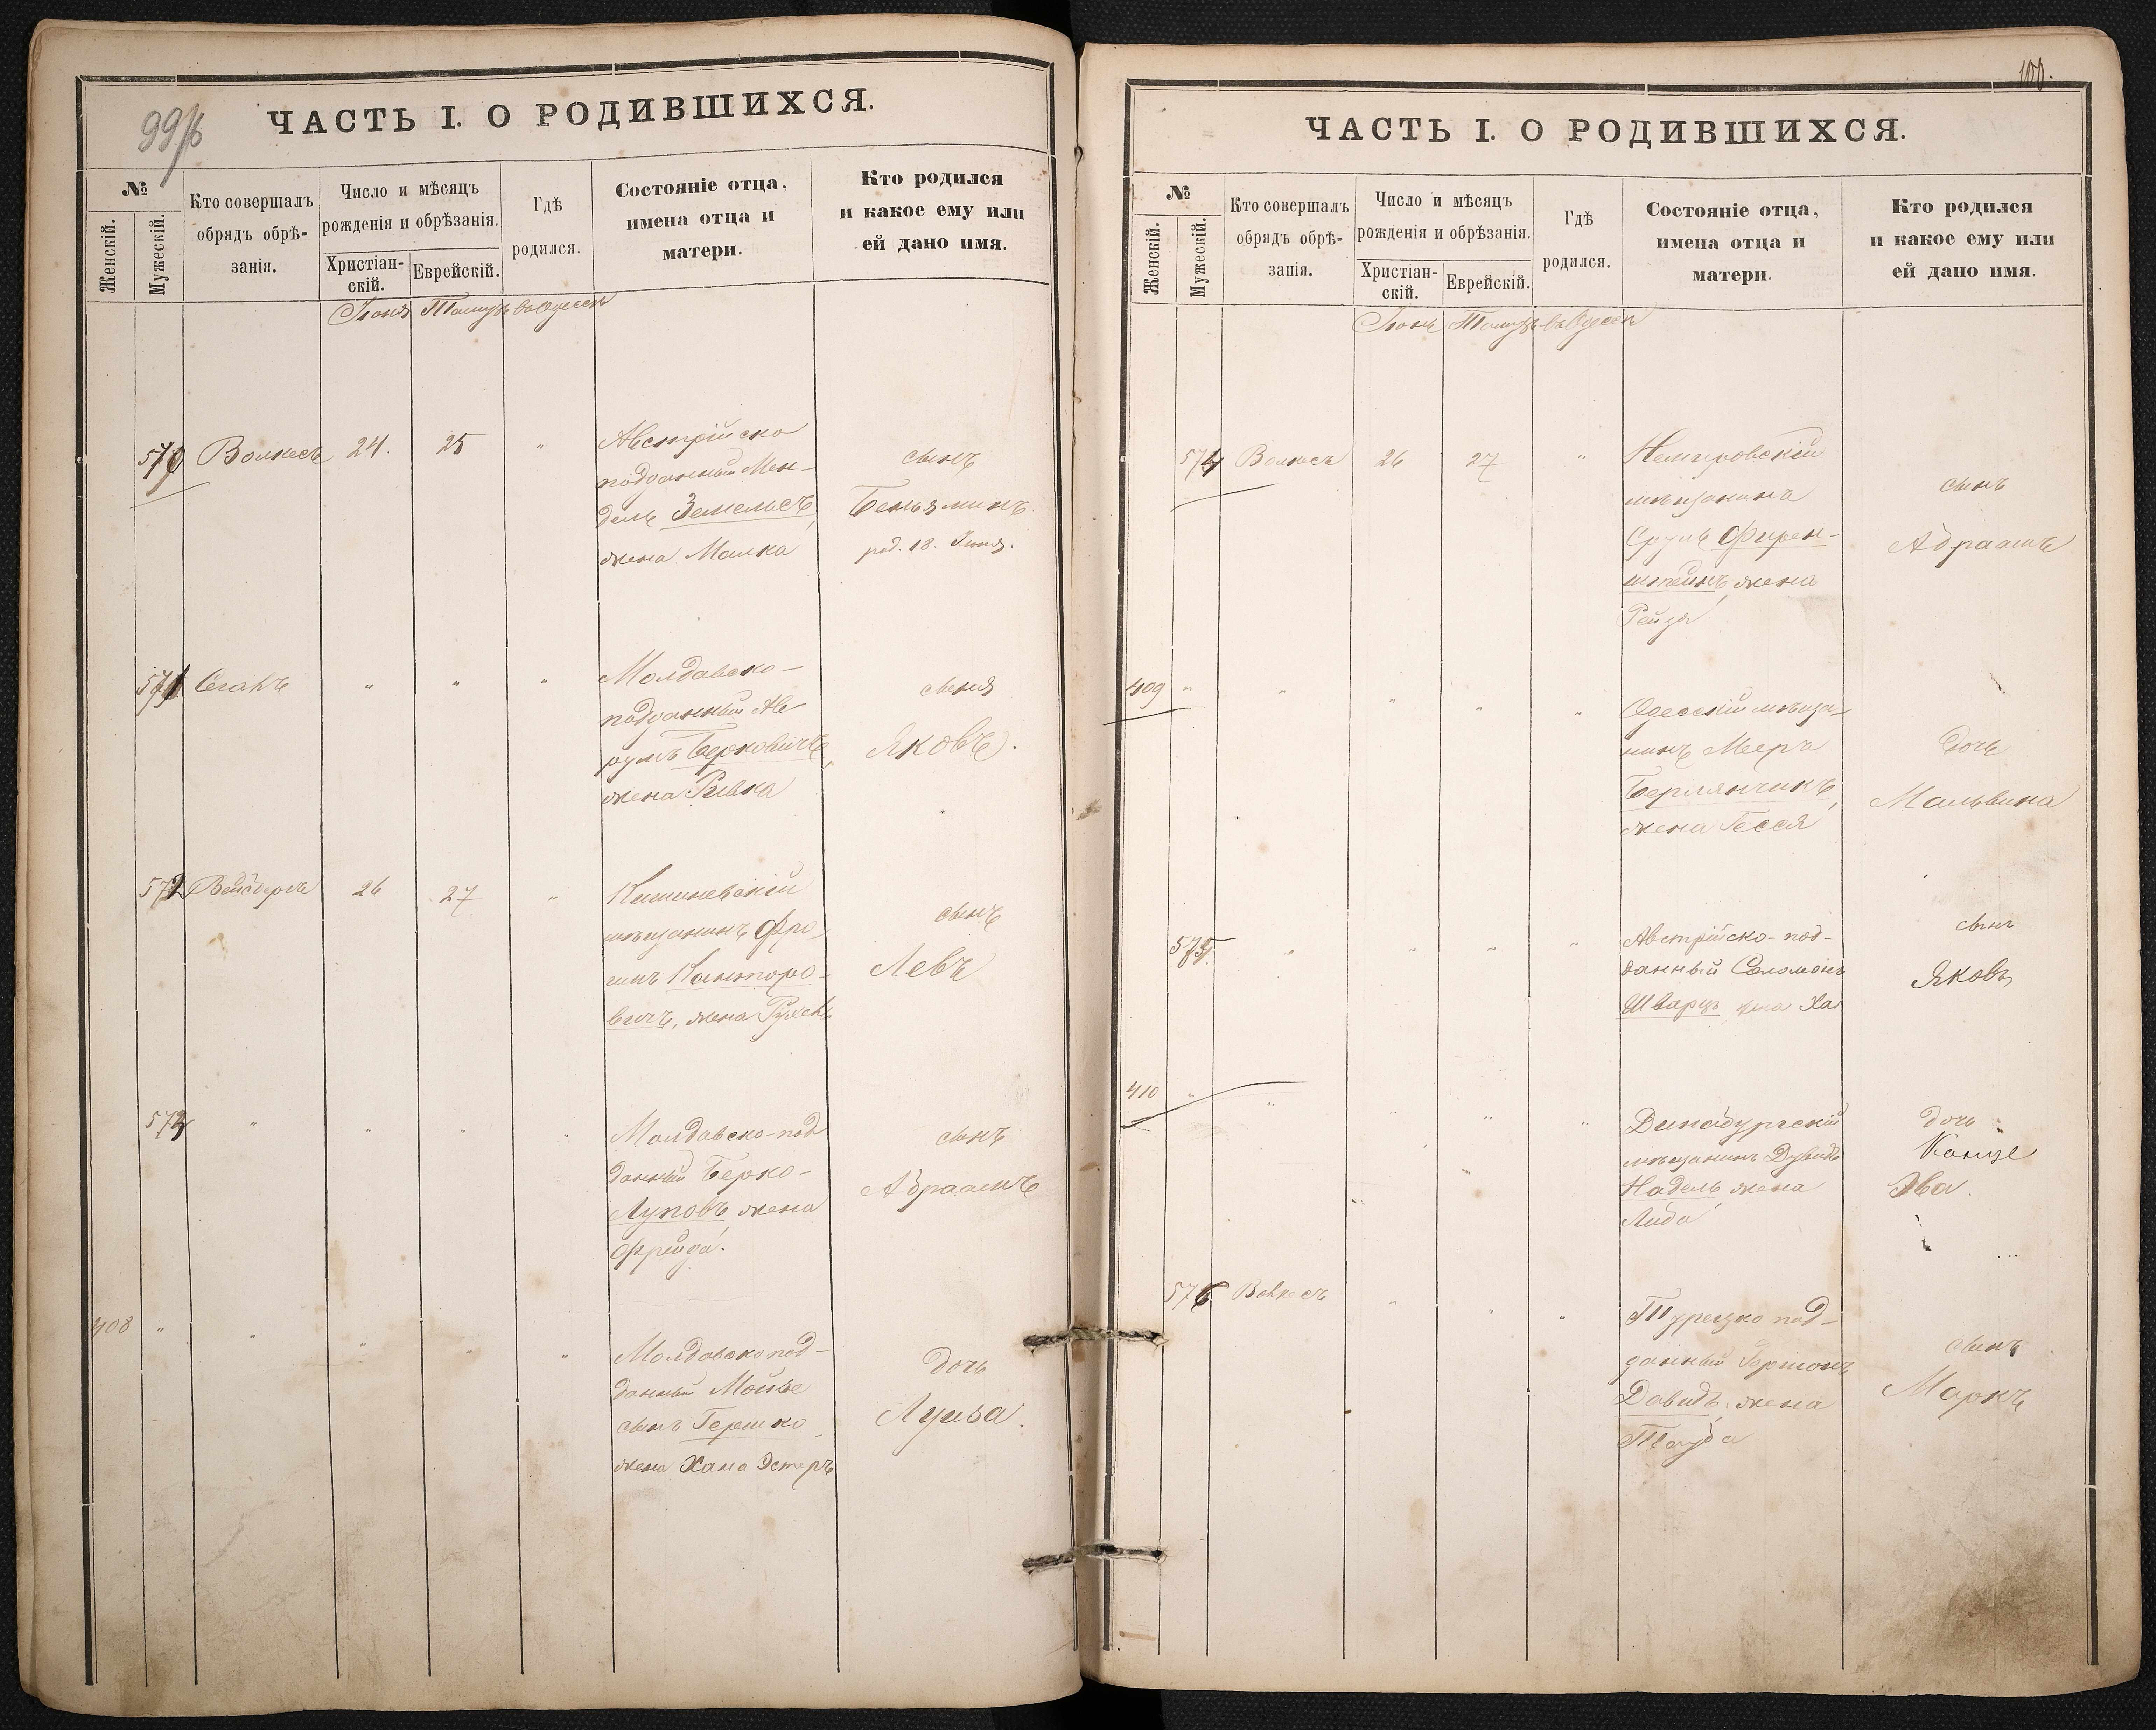 99/б
ЧАСТЬ I. О РОДИВШИХСЯ.
№
Женскій.
Мужескій.
Кто совершалъ
обрядъ обрѣ-
занія.
Число и мѣсяцъ
рожденія и обрѣзанія.
Христіан-
скій.
Еврейскій.
Гдѣ
родился.
Состояніе отца,
имена отца и
матери.
Кто родился
и какое ему или
ей дано имя.
Іюня Тамузъ въ Одессѣ
570 Волкесъ 24. 25 "
Австрійско
подданный Мен-
дель Земельсъ,
жена Малка
сынъ
Беньяминъ
род. 18. Іюня.
571 Сегалъ " " "
Молдавско-
подданный Ав-
румъ Берковичъ,
жена Ривка
сына
Яковъ.
572 26 27 "
Кишиневскій
мѣщанинъ Фро-
имъ Канторо-
вичъ, жена Рухель
сынъ
Левъ
573 " " " "
Молдавско-под
данный Берко-
Луповъ жена
Фрейда.
сынъ
Абраамъ
408 " " " " "
Молдавско под-
данный Мойше
сынъ Гершко,
жена Хана Эстеръ
дочь
Луиза.
100.
ЧАСТЬ I. О РОДИВШИХСЯ.
№
Женскій.
Мужескій.
Кто совершалъ
обрядъ обрѣ-
занія.
Число и мѣсяцъ
рожденія и обрѣзанія.
Христіан-
скій.
Еврейскій.
Гдѣ
родился.
Состояніе отца,
имена отца и
матери.
Кто родился
и какое ему или
ей дано имя.
Іюнь Тамузъ въ Одессѣ
574 Волкесъ 26 27 "
Немировскій
мѣщанинъ
Сруль Фирен-
штейнъ, жена
Рейзя
сынъ
Абраамъ
409 " " " " "
Одесскій мѣща-
нинъ Мееръ
Берлянчикъ,
жена Гесся
дочь
Мальвина
575 " " " "
Австрійско-под-
данный Соломонъ
Шварцъ жена Хая
сынъ
Яковъ
410 " " " " "
Динабургскій
мѣщанинъ Дувидъ
Надель жена
Либа
дочь
Эва.
576 Волкесъ " " "
Турецко под-
данный Гершонъ
Давидъ, жена
Тауба
сынъ
Маркъ